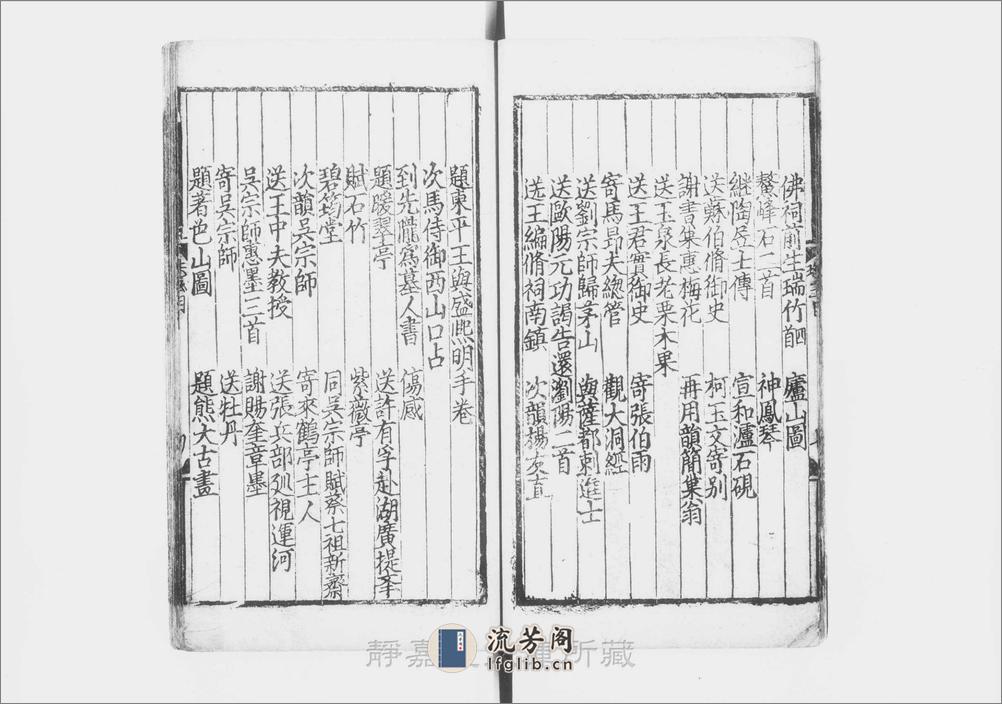 佛祠前生瑞竹四首 廬山圖
鰲峰石二首 神鳳琴
繼陶居士傳 宣和瀘石硯
送蘇伯脩御史 柯玉文寄别
謝書集惠梅花 再用韻簡集翁
送玉泉長老栗木果
送王君實御史 寄張伯雨
寄馬昂夫總管 觀大洞經
送劉宗師歸茅山 與薩都剌進士
送歐陽元功謁告還瀏陽二首
送王編脩祠南鎮 次韻楊友直
題東平王與盛熙明手卷
次馬侍御西山口占
到先隴寫墓人書 傷感
題暖翠亭 送許有孚赴湖廣提舉
賦石竹 紫微亭
碧筠堂 同吳宗師賦蔡七祖新齋
次韻吳宗師 寄來鶴亭主人
送王中夫教授 送張兵部巡視運河
吳宗師惠墨三首 謝賜奎章墨
寄吳宗師 送牡丹
題著色山圖 題熊大古畫
流芳阁
lfglib.cn
靜嘉 所藏